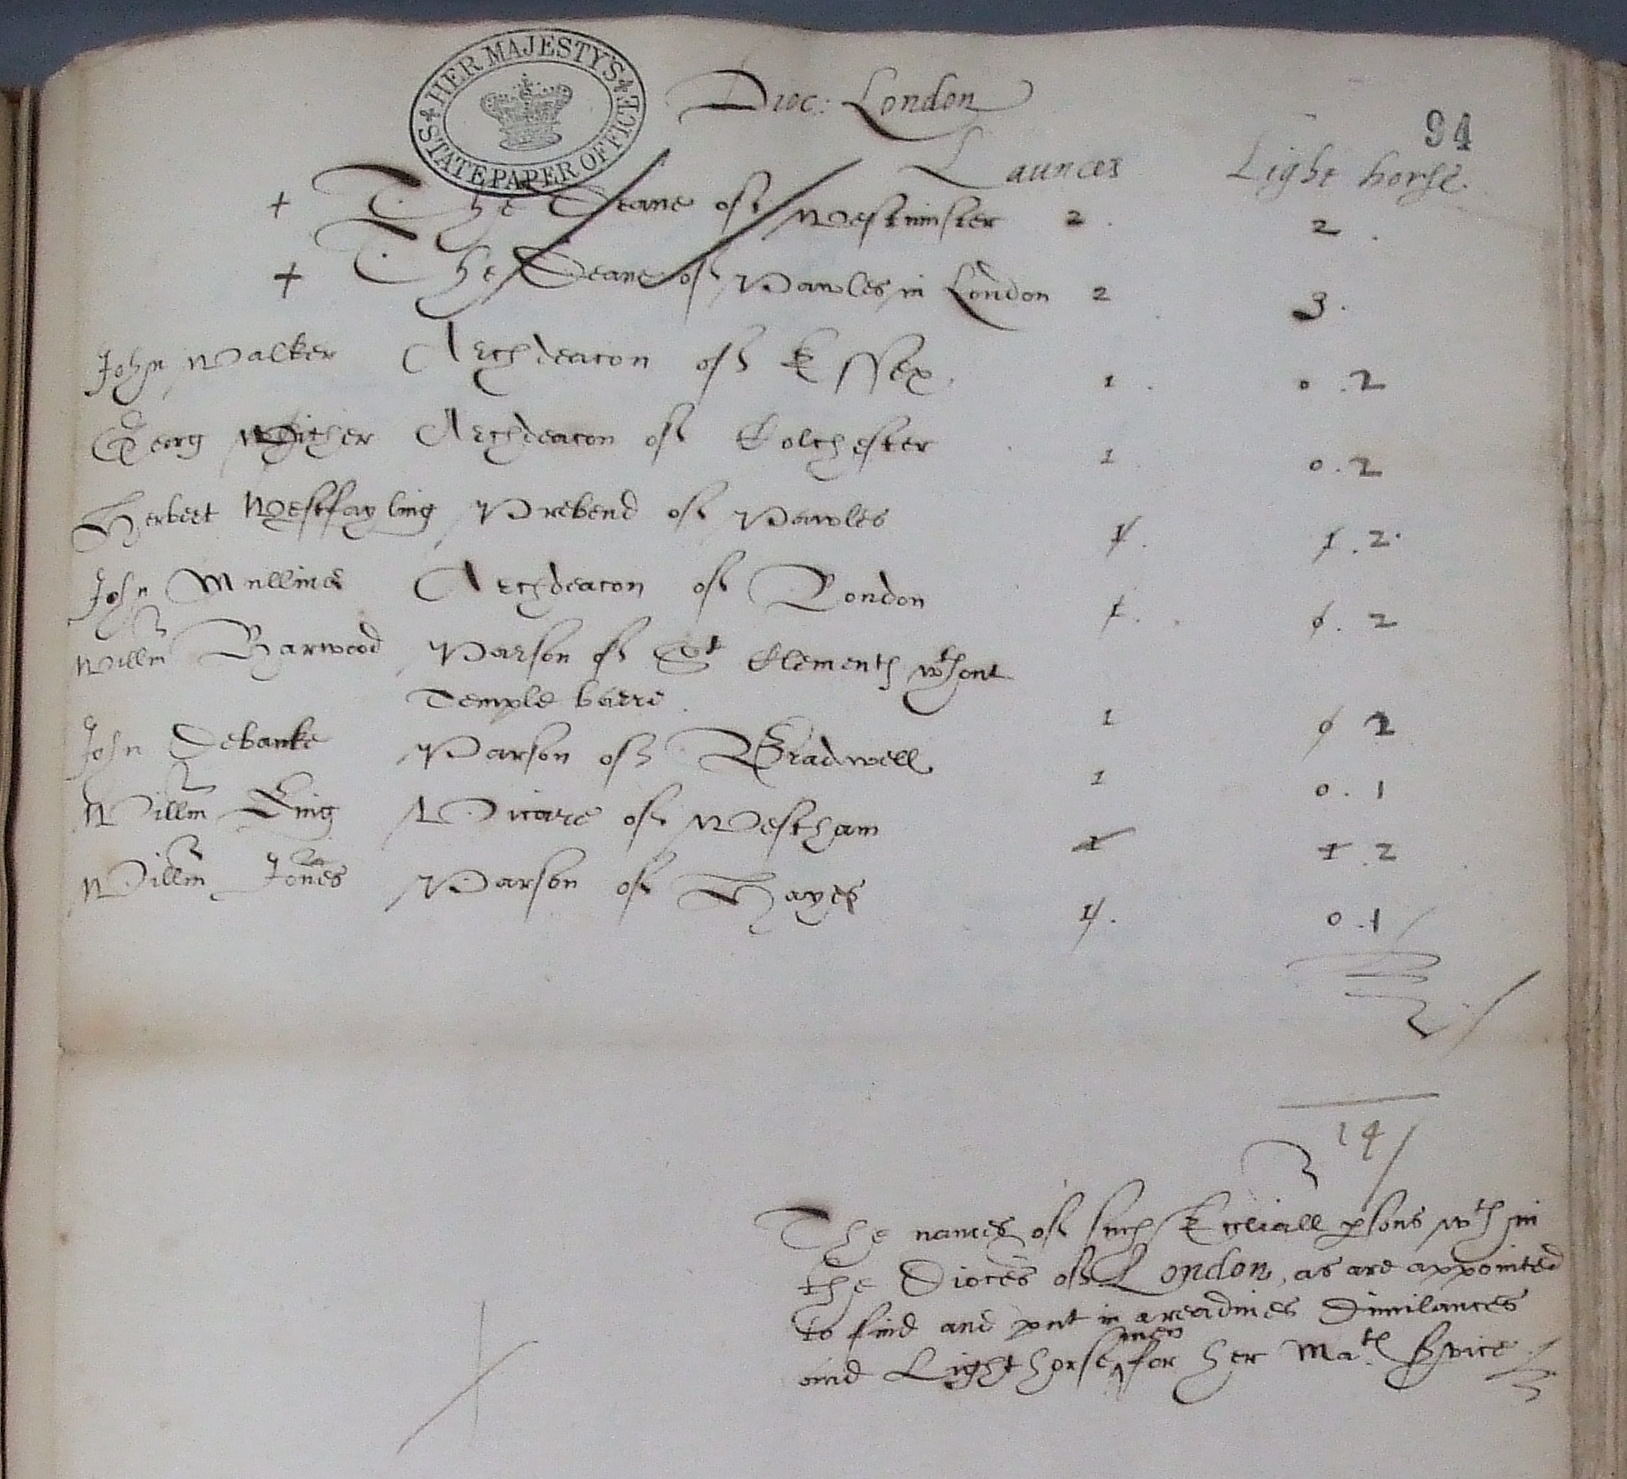 HER MAJESTY'S STATE PAPER OFFICE
Dioc: London
94
Launces Light horse
+ The Deane of Westminster 2. 2.
+ The Deane of Pawles in London 2 3.
John Walker Archdeacon of Essex. 1. 0.2
Georg Wither Archdeacon of Colchester 1. 0.2
Herbert Westfayling Prebend of Pawles 1. 1.2.
John Mullins Archdeacon of London 1. 0.2
Willm Barwood Parson of St Clements wthout
Temple barre. 1 0 2
John Debanke Parson of Bradwell 1 0.1
Willm King Vicare of Westham 1 1.2
Willm Jones Parson of Hayes 1. 0.1
14
The names of such Eccliall psons wthin
the Dioces of London, as are appointed
to find and put in areadines Dimilances
and Light horsemen for her Matis service